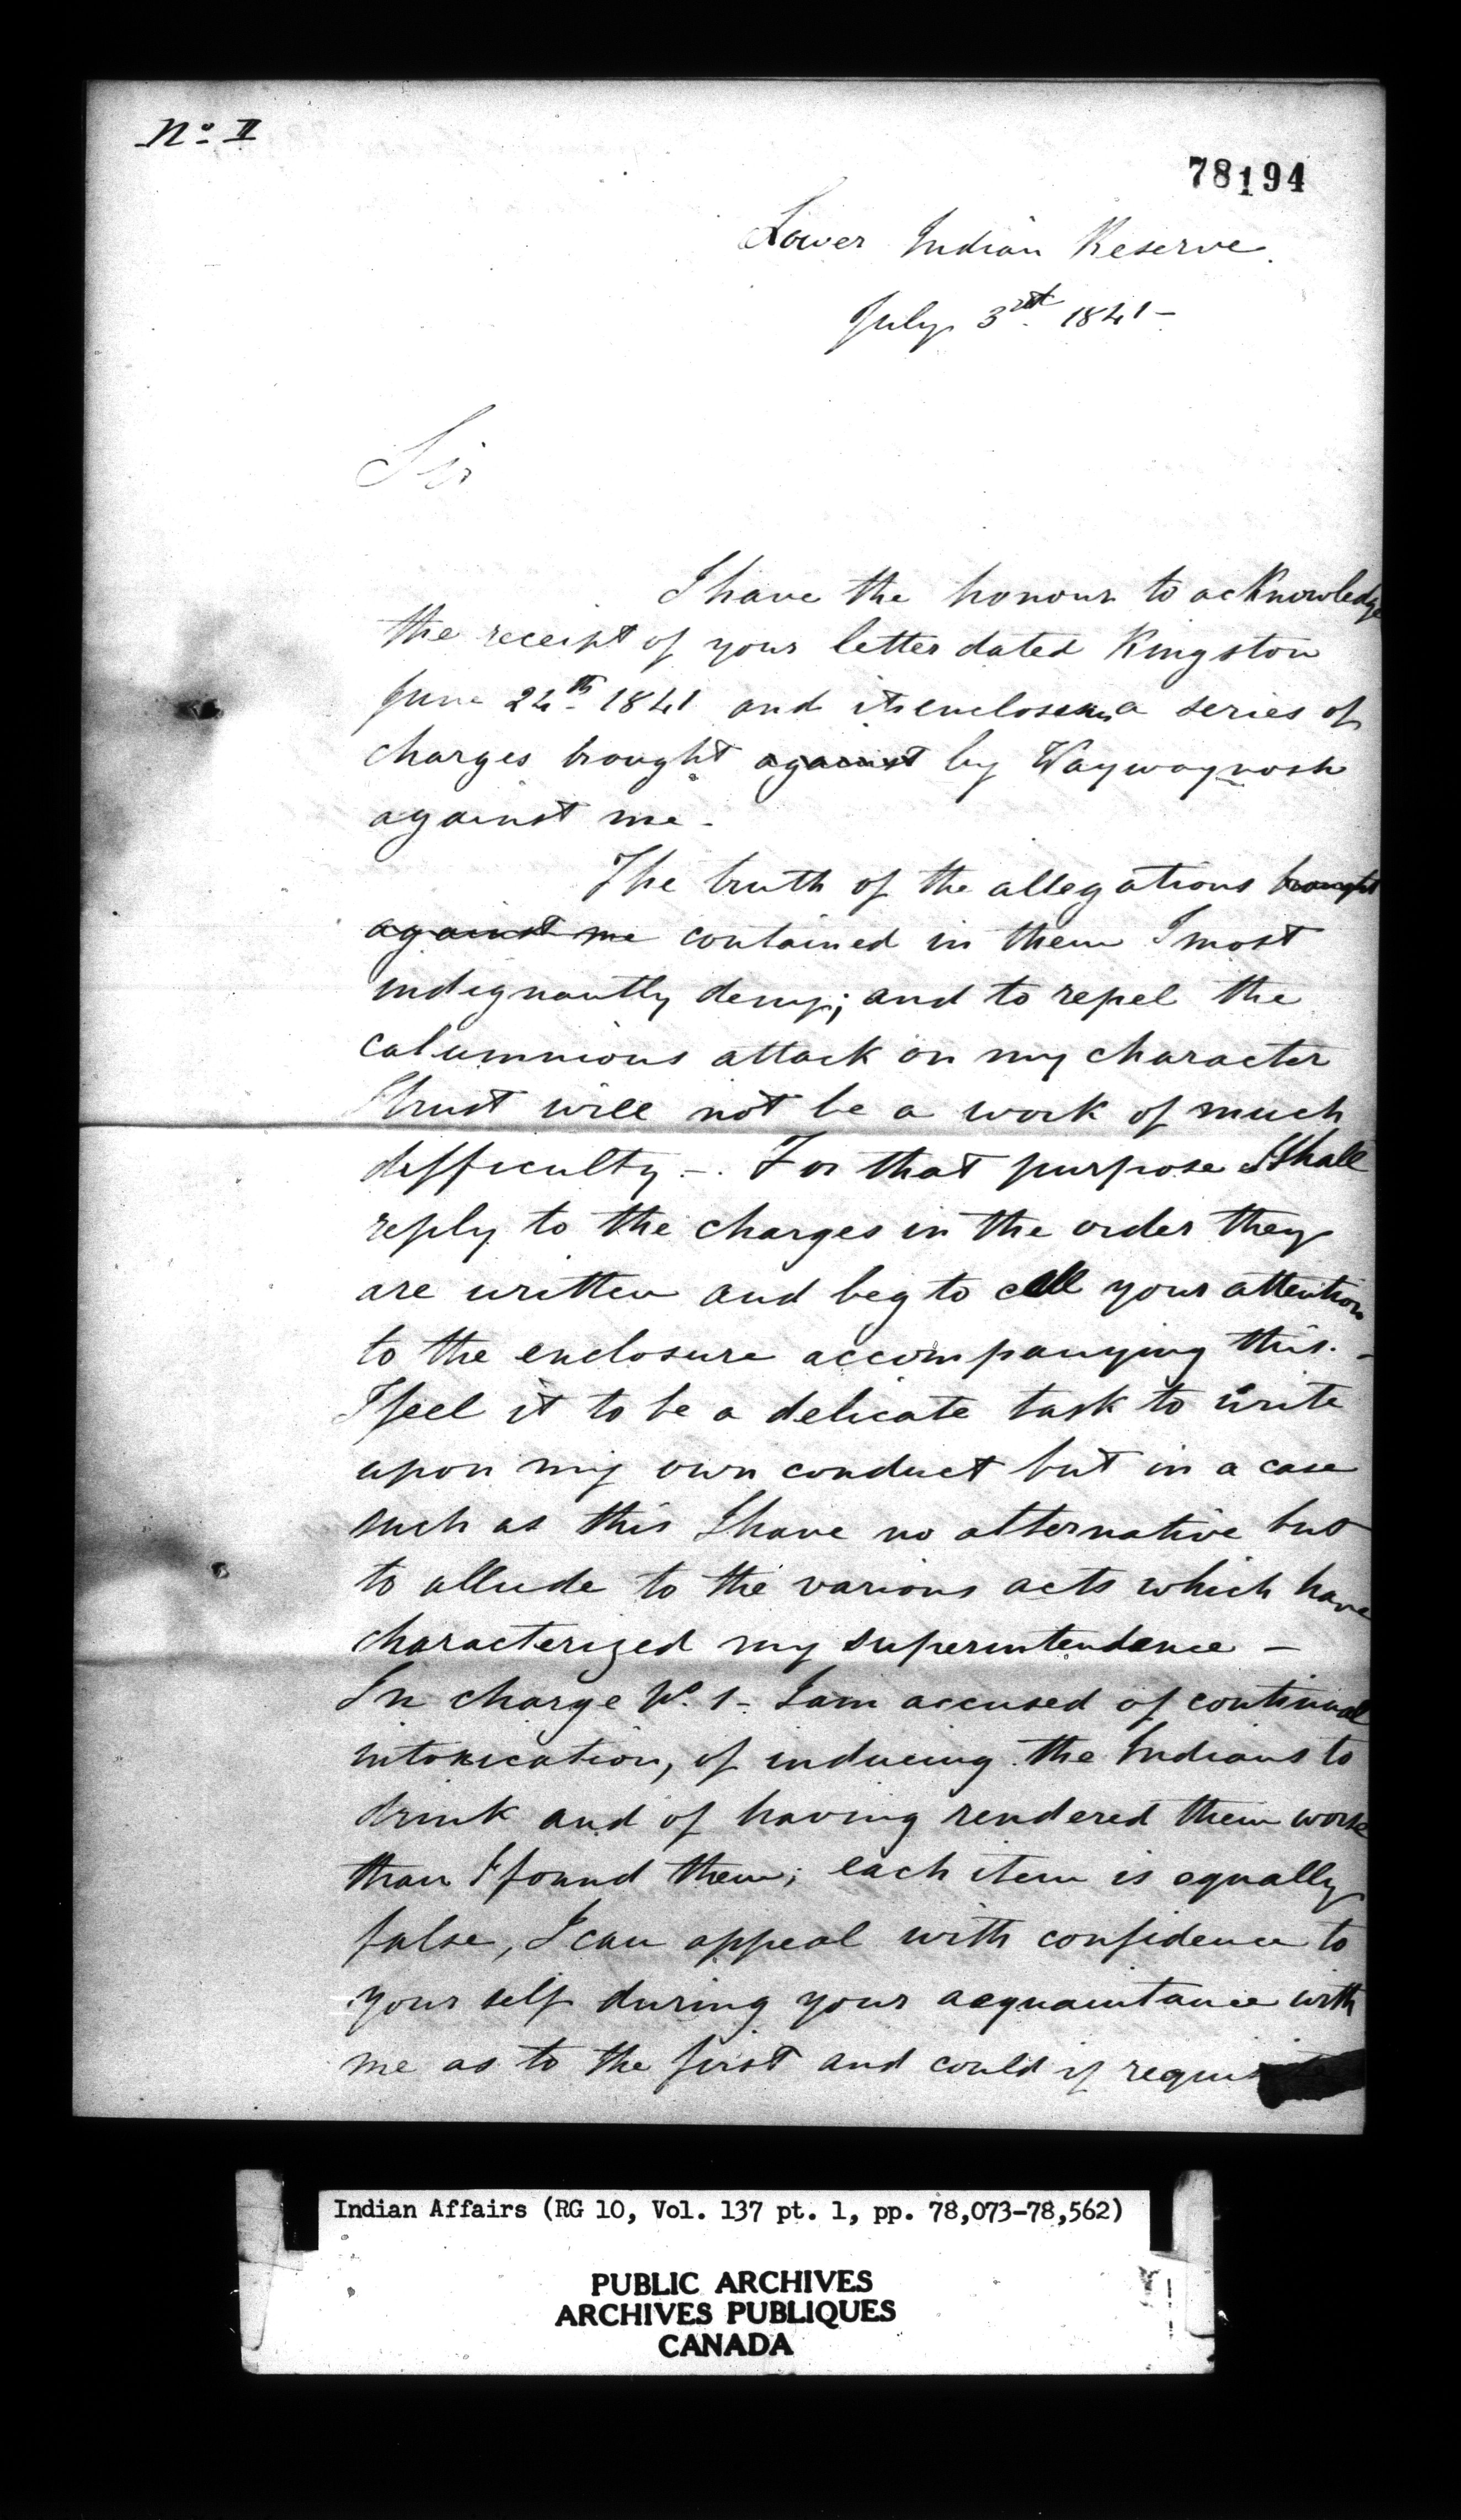 No. II
78194
Lower Indian Reserve.
July 3rd 1841 -
Sir
I have the honour to acknowledge
the receipt of your letter dated Kingston
June 24th 1841 and its enclosures a series of
charges brought against by Waywaynosh
against me -
The truth of the allegations brought
against me contained in them I most
indignantly deny; and to repel the
calumnious attack on my character
I trust will not be a work of much
difficulty -. For that purpose I shall
reply to the charges in the order they
are written and beg to call your attention
to the enclosure accompanying this. -
I feel it to be a delicate task to write
upon my own conduct but in a case
such as this I have no alternative but
to allude to the various acts which have
characterized my superintendence -
In charge No. 1 - I am accused of continual
intoxication, of inducing the Indians to
drink and of having rendered them worse
than I found them; each item is equally
false, I can appeal with confidence to
your self during your acquaintance with
me as to the first and could if requisite
Indian Affairs (RG 10, Vol. 137 pt. 1, pp. 78,073-78,562)
PUBLIC ARCHIVES
ARCHIVES PUBLIQUES
CANADA